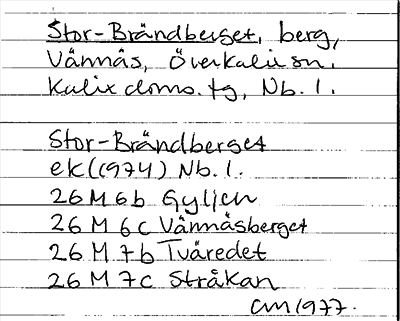 Stor-Brändberget, berg,
Vännäs, Överkalix sn.
Kalix doms. tg, Nb. l.
Stor-Brändberget
ek (1974) Nb. l.
26 M 6b Gyljen
26 M 6c Vännäsberget
26 M 7b Tväredet
26 M 7c Stråkan
CM 1977.